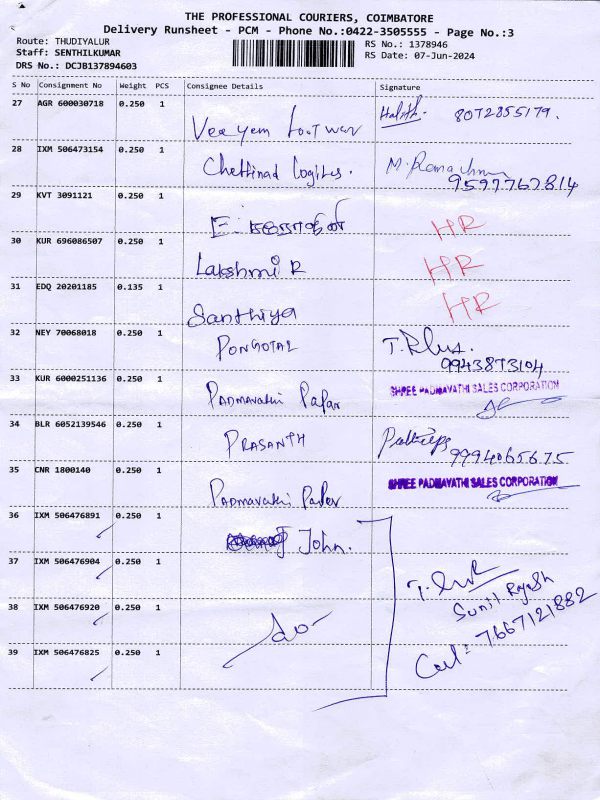 THE PROFESSIONAL COURIERS, COIMBATORE
Delivery Runsheet - PCM - Phone No.:0422-3505555 - Page No.:3
Route: THUDIYALUR
Staff: SENTHILKUMAR
DRS No.: DCJB137894603
RS No.: 1378946
RS Date: 07-Jun-2024
S No Consignment No Weight PCS Consignee Details Signature
27 AGR 600030718 0.250 1 Vee yem Foot wer 8072855179.
28 IXM 506473154 0.250 1 Chettinad Logites. 9597767814
29 KVT 3091121 0.250 1 HR
30 KUR 696086507 0.250 1 Lakshmi R HR
31 EDQ 20201185 0.135 1 Santhiya HR
32 NEY 70068018 0.250 1 PONGOTAL 9943873104
33 KUR 6000251136 0.250 1 PADMAVATHI Papar SHREE PADMAVATHI SALES CORPORATION
34 BLR 6052139546 0.250 1 PRASANTH 9994065675
35 CNR 1800140 0.250 1 PADMAVATHI Paper SHREE PADMAVATHI SALES CORPORATION
36 IXM 506476891 0.250 1 John.
37 IXM 506476904 0.250 1
38 IXM 506476920 0.250 1 do
39 IXM 506476825 0.250 1
Sunil Rajesh
Cal: 7667121882